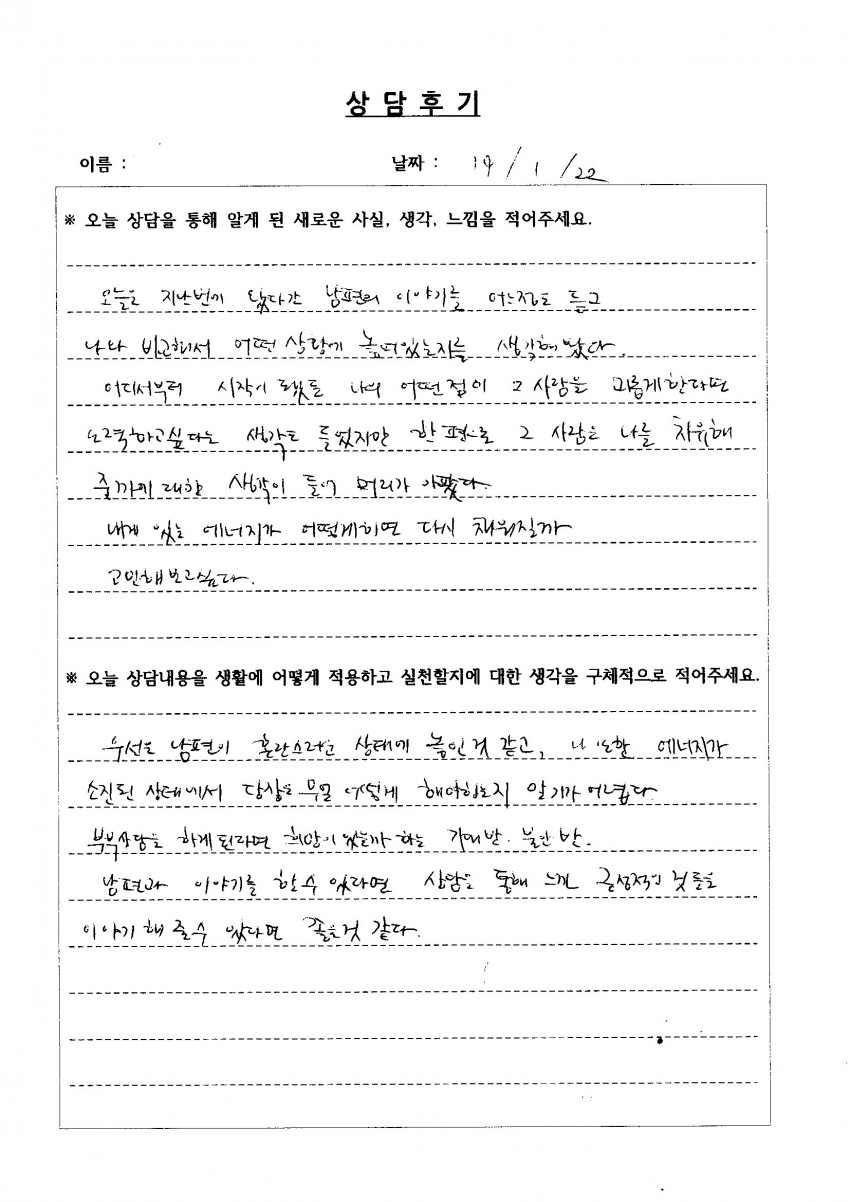 상 담 후 기
이름 :
날짜 : 19 / 1 / 22
※ 오늘 상담을 통해 알게 된 새로운 사실, 생각, 느낌을 적어주세요.
오늘은 지난번에 왔다간 남편의 이야기를 어느정도 듣고
나나 비교해서 어떤 상황에 놓여있는지를 생각해 봤다.
어디서부터 시작이 됐든 나의 어떤 점이 그 사람을 괴롭게한다면
노력하고싶다는 생각도 들었지만 한편으로 그 사람은 나를 치유해
줄까에 대한 생각이 들어 머리가 아팠다.
내게 있는 에너지가 어떻게하면 다시 채워질까
고민해보고싶다.
※ 오늘 상담내용을 생활에 어떻게 적용하고 실천할지에 대한 생각을 구체적으로 적어주세요.
우선은 남편이 혼란스러운 상태에 놓인것 같고, 나 또한 에너지가
소진된 상태에서 당장은 무얼 어떻게 해야하는지 알기가 어렵다.
부부상담을 하게된다면 희망이 있을까 하는 기대반. 불안반.
남편과 이야기를 할수 있다면 상담을 통해 느낀 긍정적인 것들을
이야기 해 줄수 있다면 좋을것 같다.